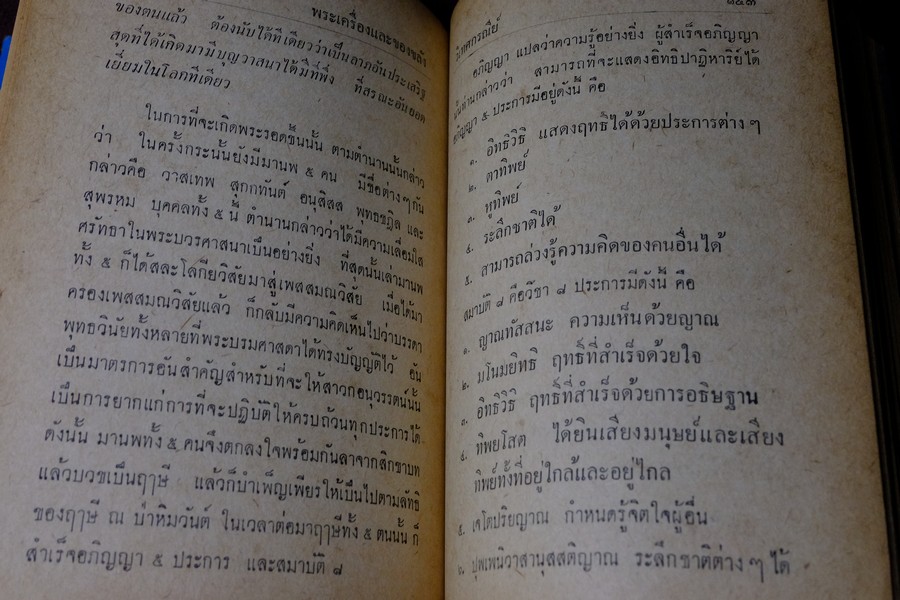 พระเครื่องและของขลัง
ของตนแล้ว ต้องนับได้ทีเดียวว่าเป็นลาภอันประเสริฐ
สุดที่ได้เกิดมามีบุญวาสนาได้มีที่พึ่ง ที่สรณะอันยอด
เยี่ยมในโลกทีเดียว
ในการที่จะเกิดพระรอดขึ้นนั้น ตามตำนานนั้นกล่าว
ว่า ในครั้งกระนั้นยังมีมานพ ๕ คน มีชื่อต่างๆกัน
กล่าวคือ วาสเทพ สุกกทันต์ อนุสิสส พุทธชฎิล และ
สุพรหม บุคคลทั้ง ๕ นี้ ตำนานกล่าวว่าได้มีความเลื่อมใส
ศรัทธาในพระบวรศาสนาเป็นอย่างยิ่ง ที่สุดนั้นเล่ามานพ
ทั้ง ๕ ก็ได้สละโลกียวิสัยมาสู่เพสสมณวิสัย เมื่อได้มา
ครองเพสสมณวิสัยแล้ว ก็กลับมีความคิดเห็นไปว่าบรรดา
พุทธวินัยทั้งหลายที่พระบรมศาสดาได้ทรงบัญญัติไว้ อัน
เป็นมาตรการอันสำคัญสำหรับที่จะให้สาวกอนุวรรตน์นั้น
เป็นการยากแก่การที่จะปฏิบัติให้ครบถ้วนทุกประการได้
ดังนั้น มานพทั้ง ๕ คนจึงตกลงใจพร้อมกันลาจากสิกขาบท
แล้วบวชเป็นฤๅษี แล้วก็บำเพ็ญเพียรให้เป็นไปตามลัทธิ
ของฤๅษี ณ ป่าหิมวันต์ ในเวลาต่อมาฤๅษีทั้ง ๕ ตนนั้น ก็
สำเร็จอภิญญา ๕ ประการ และสมาบัติ ๘
๑๕๓
อภิญญา แปลว่าความรู้อย่างยิ่ง ผู้สำเร็จอภิญญา
นั้นท่านกล่าวว่า สามารถที่จะแสดงอิทธิปาฏิหาริย์ได้
อภิญญา ๕ ประการมีอยู่ดังนี้ คือ
๑. อิทธิวิธิ แสดงฤทธิ์ได้ด้วยประการต่าง ๆ
๒. ตาทิพย์
๓. หูทิพย์
๔. ระลึกชาติได้
๕. สามารถล่วงรู้ความคิดของคนอื่นได้
สมาบัติ ๘ คือวิชา ๘ ประการมีดังนี้ คือ
๑. ญาณทัสสนะ ความเห็นด้วยญาณ
๒. มโนมยิทธิ ฤทธิ์ที่สำเร็จด้วยใจ
๓. อิทธิวิธิ ฤทธิ์ที่สำเร็จด้วยการอธิษฐาน
๔. ทิพยโสต ได้ยินเสียงมนุษย์และเสียง
ทิพย์ทั้งที่อยู่ใกล้และอยู่ไกล
๕. เจโตปริยญาณ กำหนดรู้จิตใจผู้อื่น
๖. ปุพเพนิวาสานุสสติญาณ ระลึกชาติต่าง ๆ ได้